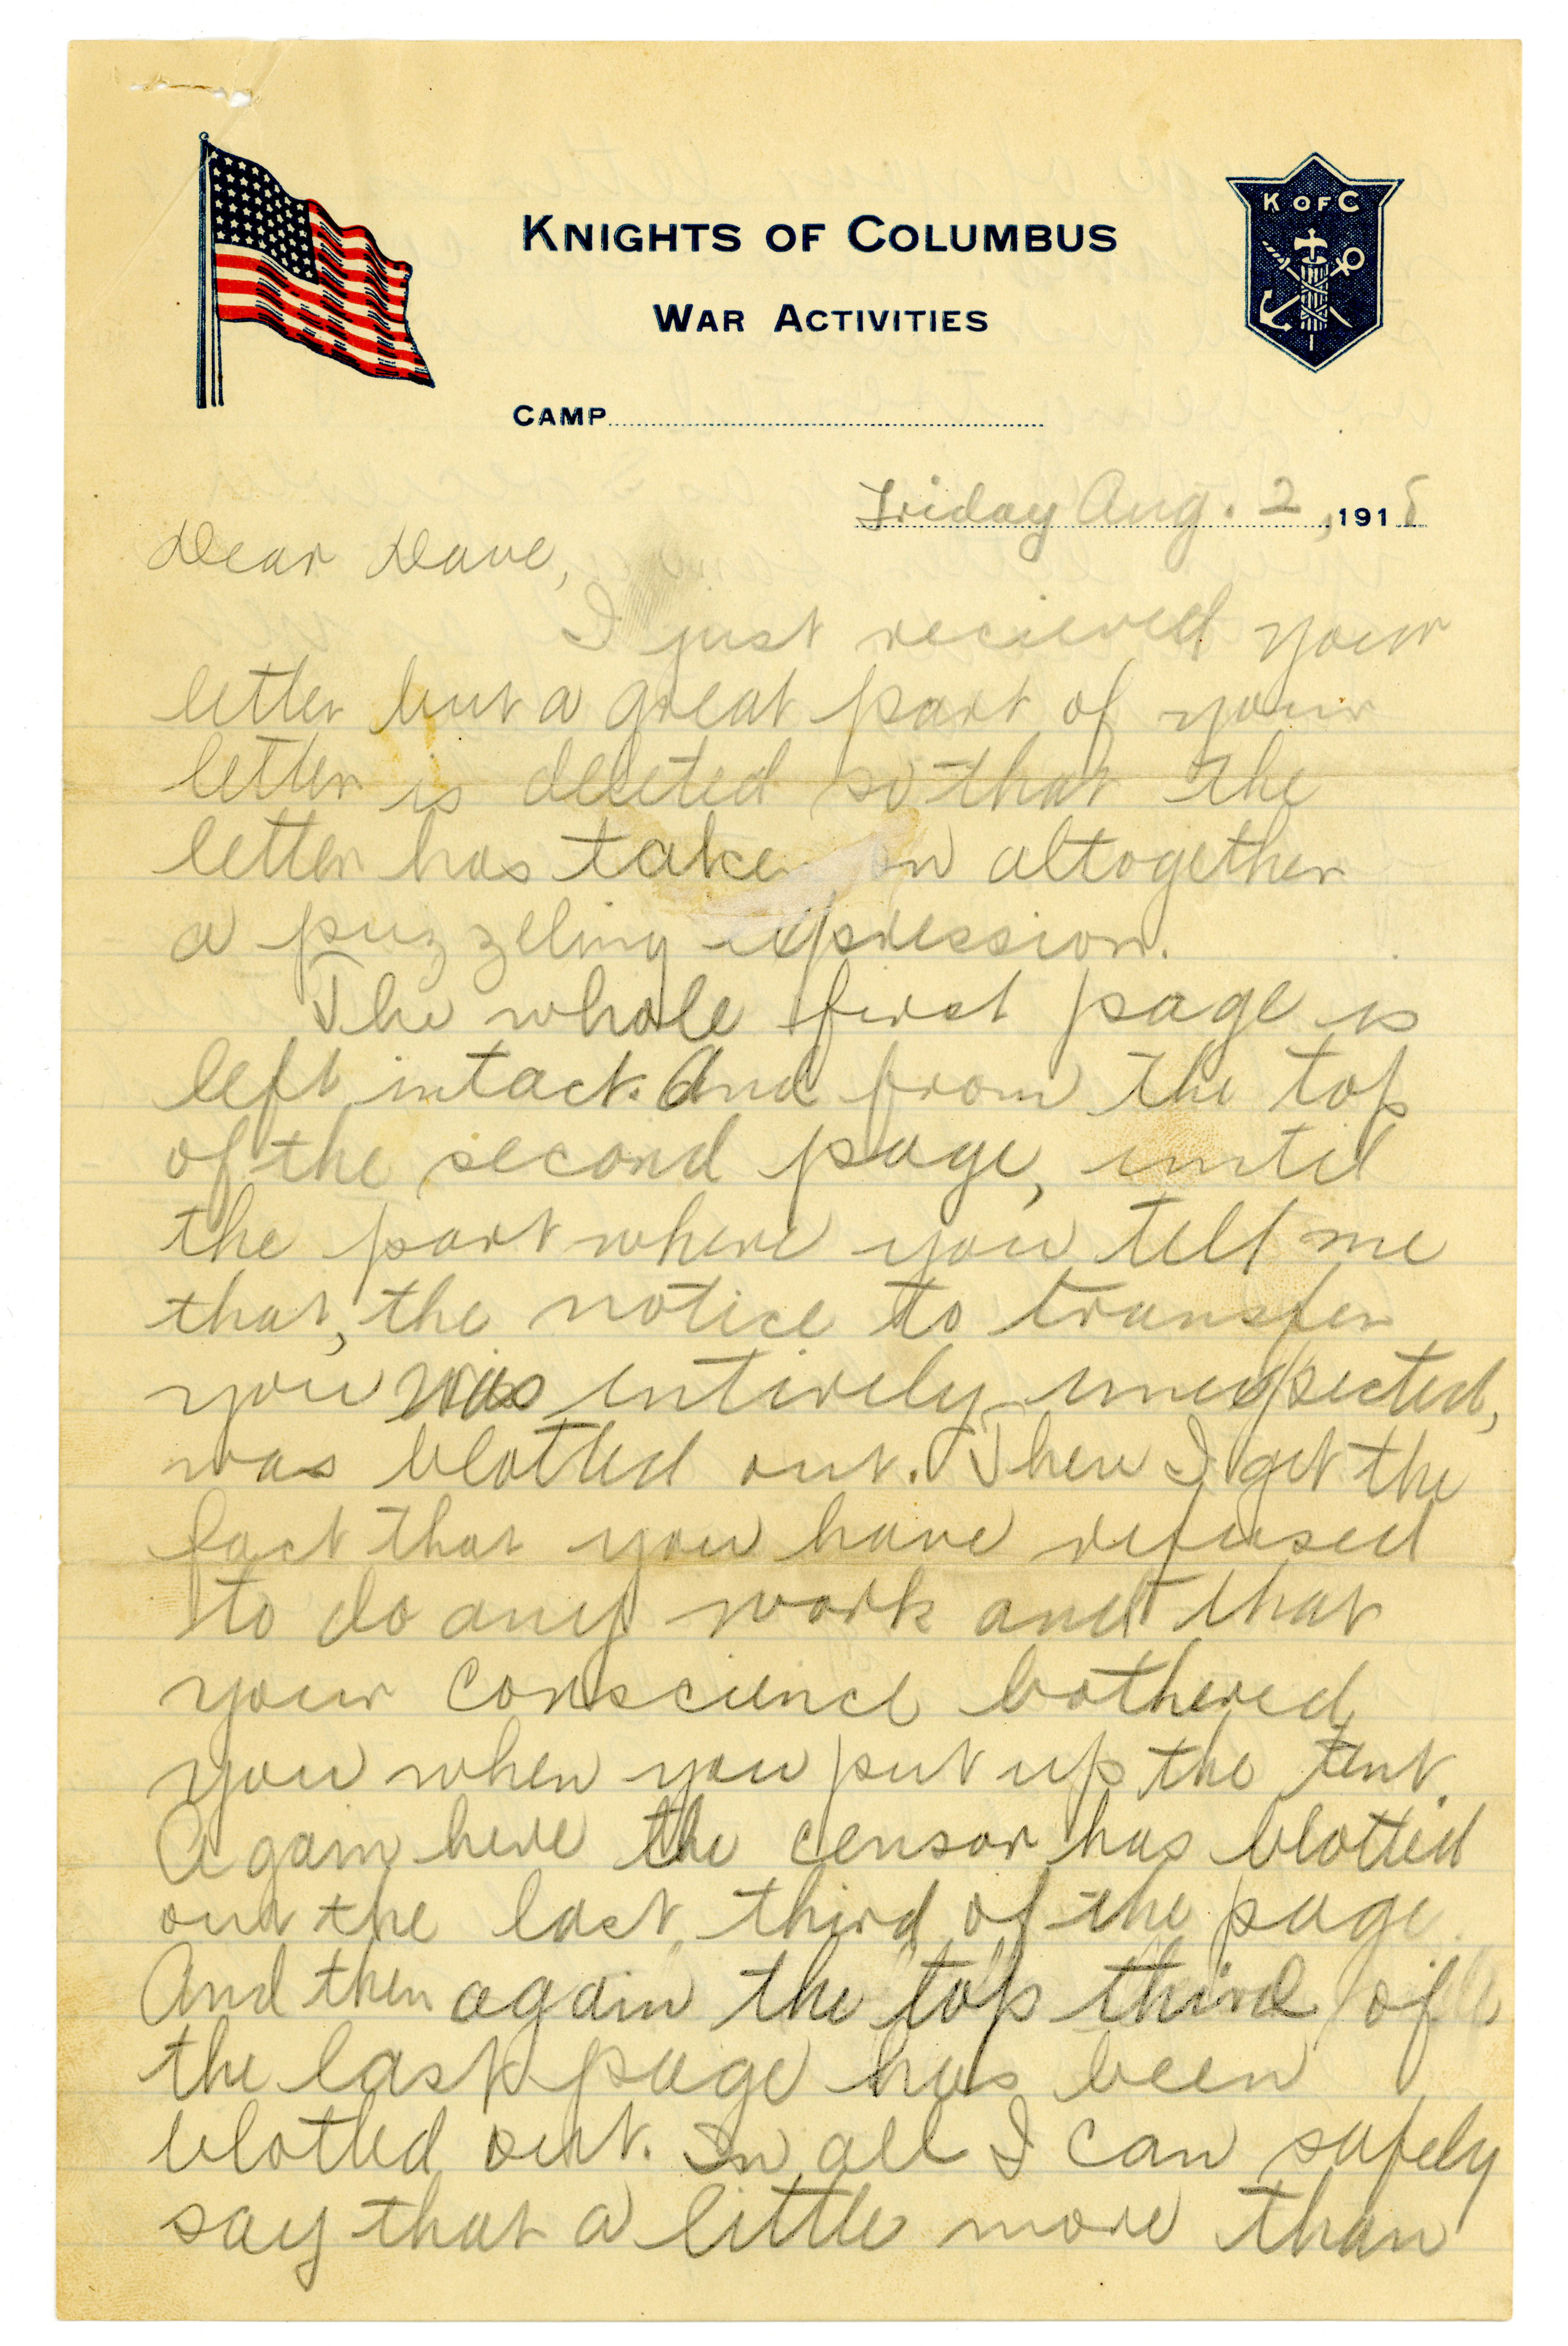 K OF C
KNIGHTS OF COLUMBUS
WAR ACTIVITIES
CAMP
Friday Aug. 2, 1918
Dear Dave,
I just recieved your
letter but a great part of your
letter is deleted so that the
letter has taken on altogether
a puzzeling expression.
The whole first page is
left intact. And from the top
of the second page, until
the part where you tell me
that, the notice to transfer
you was entirely unexpected,
was blotted out. Then I get the
fact that you have refused
to do any work and that
your conscience bothered
you when you put up the tent.
Again here the censor has blotted
out the last third of the page.
And then again the top third of
the last page has been
blotted out. In all I can safely
say that a little more than